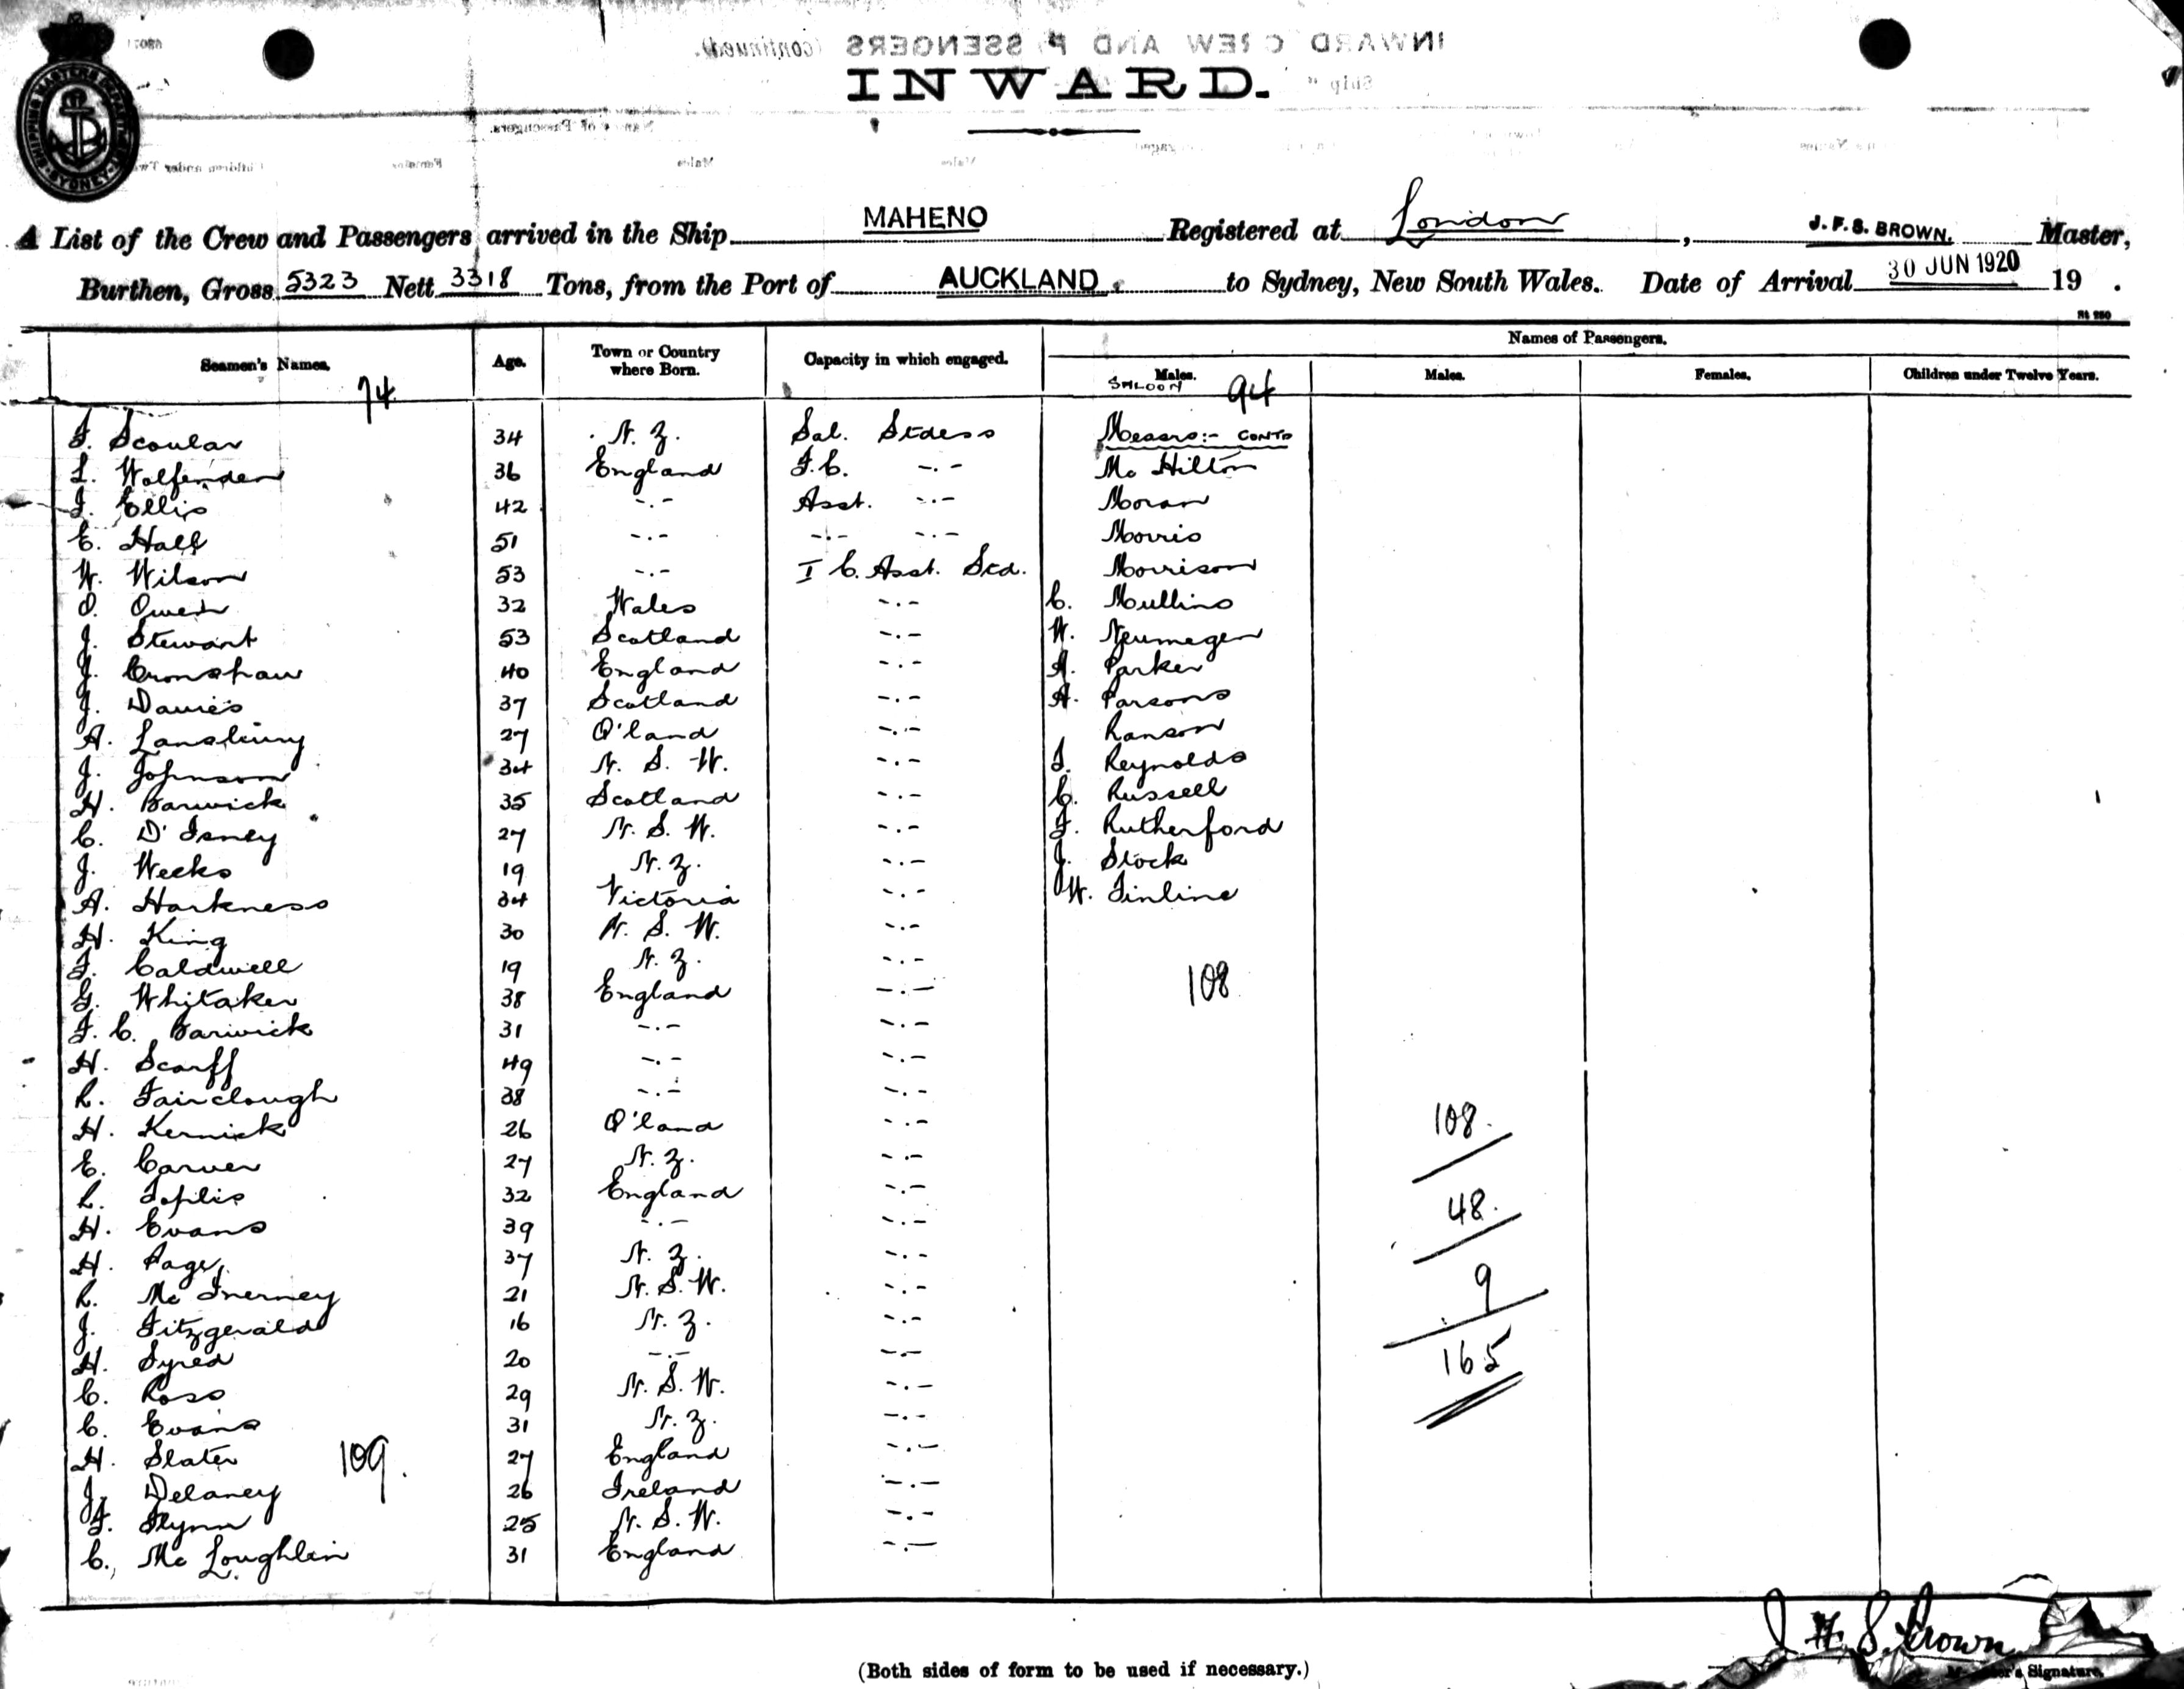 INWARD.
A List of the Crew and Passengers arrived in the Ship MAHENO Registered at London, J. F. S. BROWN. Master,
Burthen, Gross 5323 Nett 3318 Tons, from the Port of AUCKLAND. to Sydney, New South Wales. Date of Arrival 30 JUN 1920 19 .
Names of Passengers.
Seamen's Names. Age. Town or Country where Born. Capacity in which engaged. Males. Males. Females. Children under Twelve Years.
74 SALOON 94
F. Scoular 34 N. Z. Sal. Stdess Messrs:- CONTD
L. Wolfenden 36 England F.C. -.- Mc Hilton
I. Ellis 42 -.- Asst. -.- Moran
E. Hall 51 -.- -.- -.- Morris
W. Wilson 53 -.- I C. Asst. Std. Morrison
O. Owen 32 Wales -.- C. Mullins
J. Stewart 53 Scotland -.- W. Neumegen
J. Cronshaw 40 England -.- A. Parker
J. Davies 37 Scotland -.- A. Parsons
A. Lansbury 27 Q'land -.- Ranson
J. Johnson 34 N. S. W. -.- F. Reynolds
H. Barwick 35 Scotland -.- C. Russell
C. D'Isney 27 N. S. W. -.- F. Rutherford
J. Weeks 19 N. Z. -.- J. Stock
A. Harkness 34 Victoria -.- W. Tinline
H. King 30 N. S. W. -.-
F. Caldwell 19 N. Z. -.-
G. Whitaker 38 England -.- 108
F. C. Barwick 31 -.- -.-
H. Scarff 49 -.- -.-
R. Fairclough 38 -.- -.-
H. Kernick 26 Q'land -.- 108.
E. Carver 27 N. Z. -.-
R. Toplis 32 England -.- 48.
H. Evans 39 -.- -.-
H. Page 37 N. Z. -.-
R. Mc Inerney 21 N. S. W. -.- 9
J. Fitzgerald 16 N. Z. -.-
H. Syred 20 -.- -.- 165
C. Ross 29 N. S. W. -.-
C. Evans 31 N. Z. -.-
H. Slater 109. 27 England -.-
J. Delaney 26 Ireland -.-
F. Flynn 25 N. S. W. -.-
C. Mc Loughlin 31 England -.-
J F S. Brown
Master's Signature.
(Both sides of form to be used if necessary.)